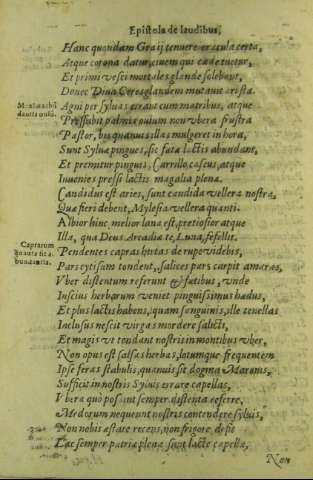 Epistola de laudibus,
Hanc quondam Graij tenuere oracula certa,
Atque corona datur, ciuem qui cæde tuetur,
Et primi vesci mortales glande solebant,
Donec Diua Ceres glandem mutauit arista.
Agni per syluas errant cum matribus, atque
Pressabit palmis ouium non vbera frustra
Pastor, bis quamuis illas mulgeret in hora,
Sunt Syluæ pingues, sic fœta lactis abundant,
Et premitur pinguis, Carrillo, caseus, atque
Inuenies pressi lactis magalia plena.
Candidus est aries, sunt candida vellera nostra,
Quæ fieri debent, Mylesia vellera quanti.
Albior hinc, melior lana est, pretiosior atque
Illa, qua Deus Arcadiæ te, Luna, fefellit.
Caprarum
Pendentes capras hirtas de rupe videbis,
Pars cytisum tondent, salices pars carpit amaras,
Vber distentum referunt & fœtibus, vnde
Inscius herbarum veniet pinguissimus hædus,
Et plus lactis habens, quam sanguinis, ille tenellas
Inclusus nescit virgas mordere salicti,
Et magis vt tendant nostris in montibus vber,
Non opus est salsas herbas, lotumque frequentem
Ipse feras stabulis, quamuis sit dogma Maronis,
Sufficit in nostris Syluis errare capellas,
Vbera quò possint semper distenta referre,
Medorum nequeunt nostris contendere syluis,
Non nobis æstate recens, non frigore deest
Lac semper patriæ plenæ sunt lacte capellæ,
Non